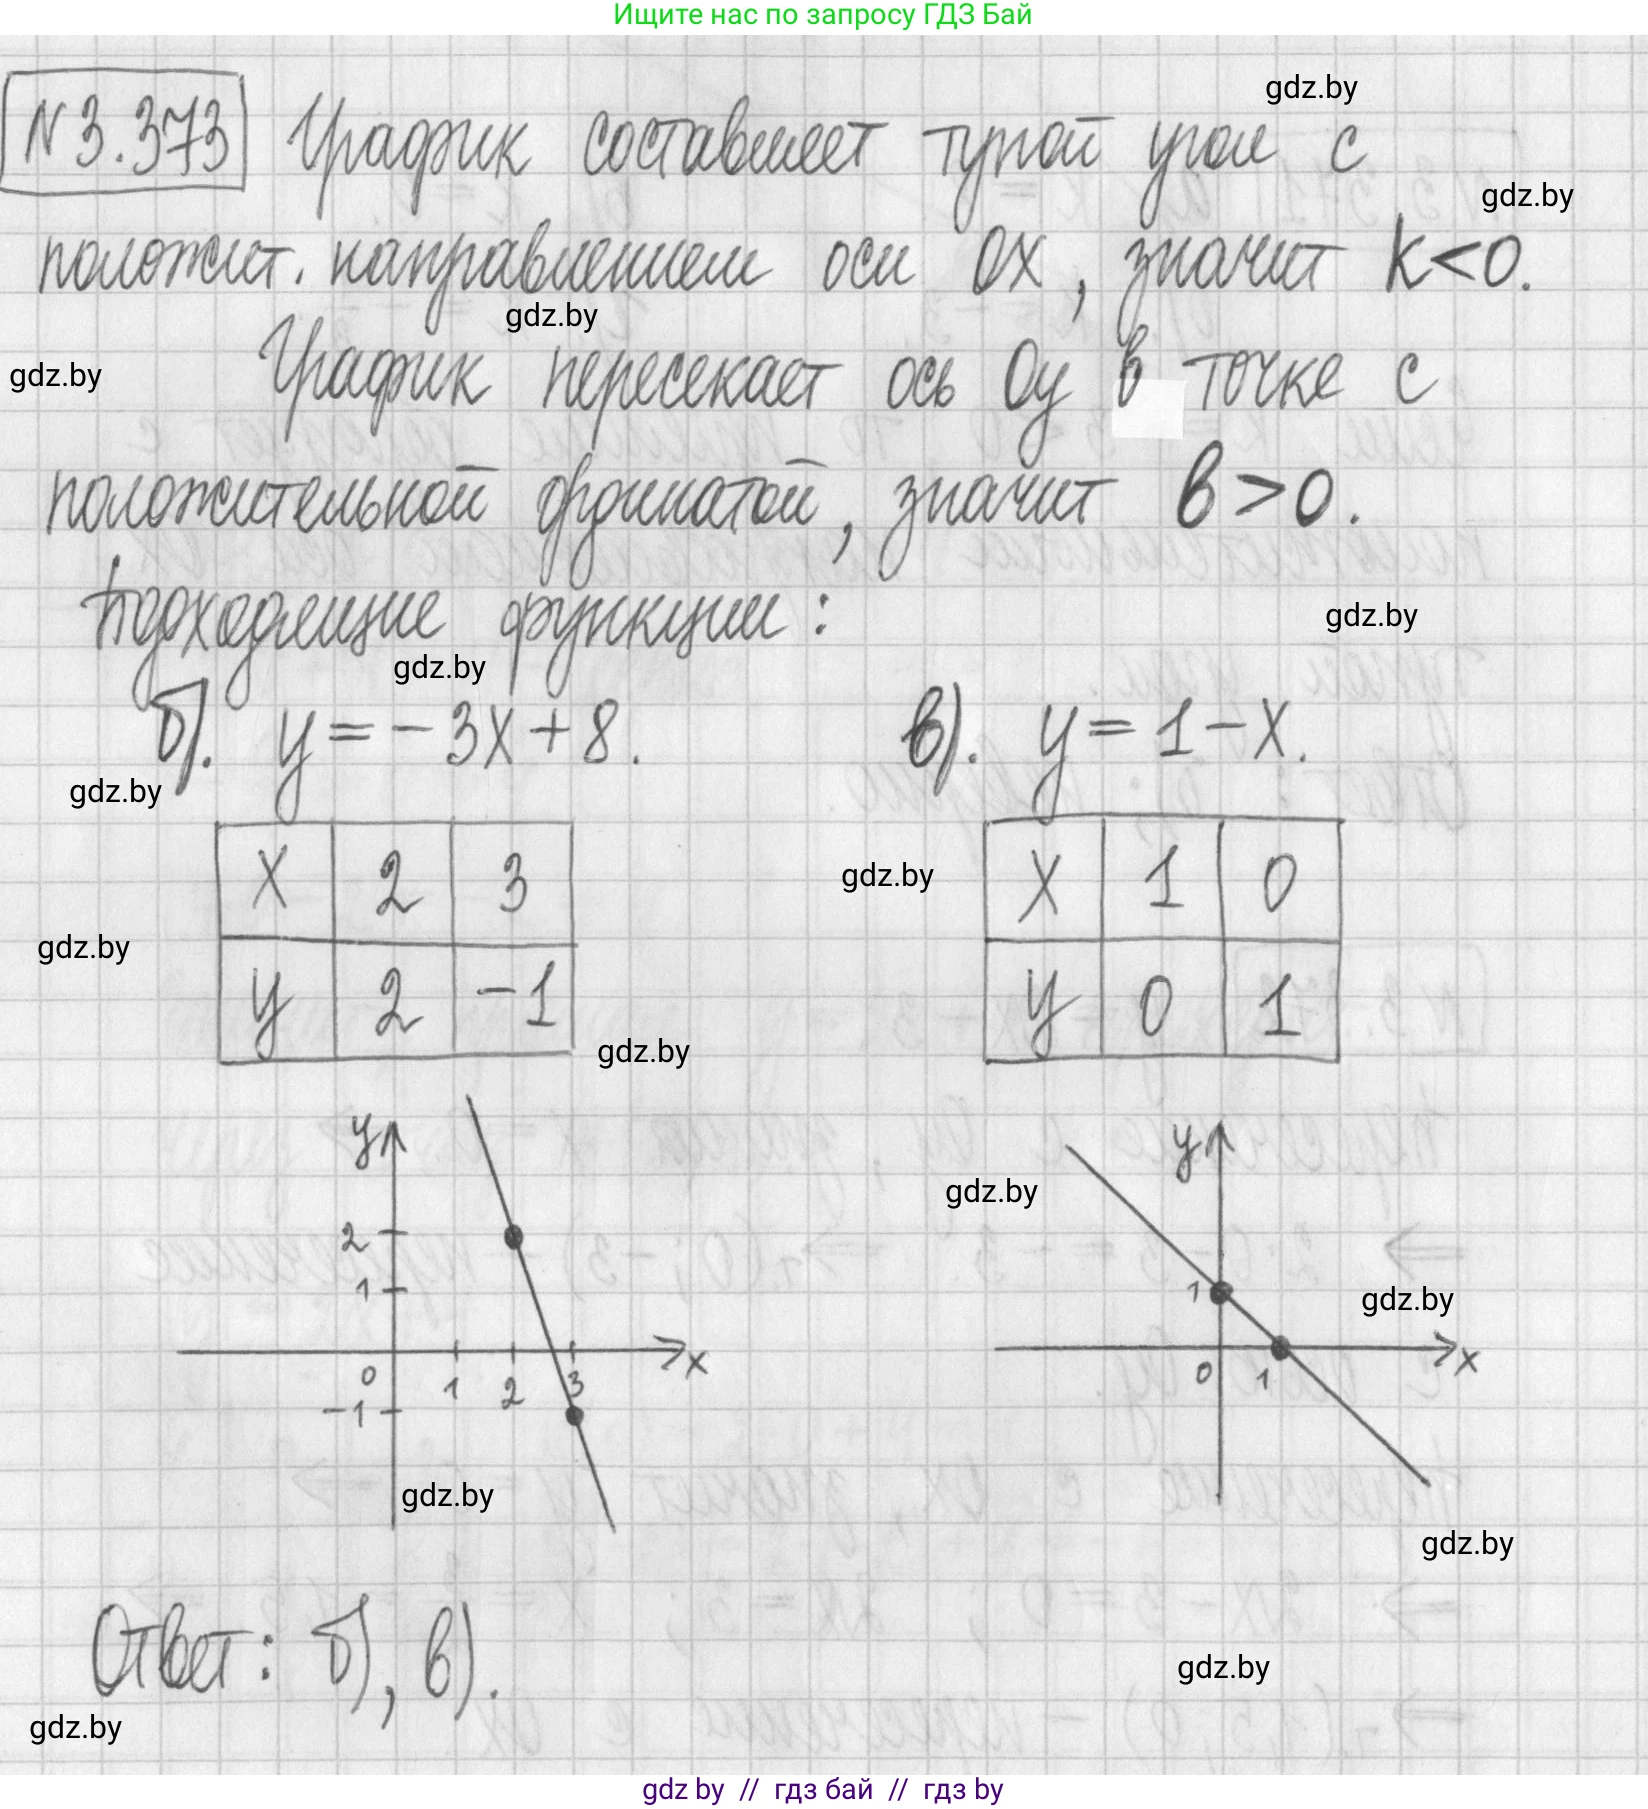 Ищите нас по запросу ГДЗ Бай
gdz.by
N3.373 График составляет тупой угол с
gdz.by
положит. направлением оси Ox, значит k<0.
gdz.by
График пересекает ось Oy в точке с
gdz.by
положительной ординатой, значит b>0.
Подходящие функции:
gdz.by
gdz.by
б). y=-3x+8. в). y=1-x.
gdz.by
x 2 3 x 1 0
gdz.by
gdz.by
y 2 -1 y 0 1
gdz.by
y y
gdz.by
2
1 1
gdz.by
0 1 2 3 x 0 1 x
-1
gdz.by
gdz.by
Ответ: б), в).
gdz.by
gdz.by
gdz by // гдз бай // гдз by